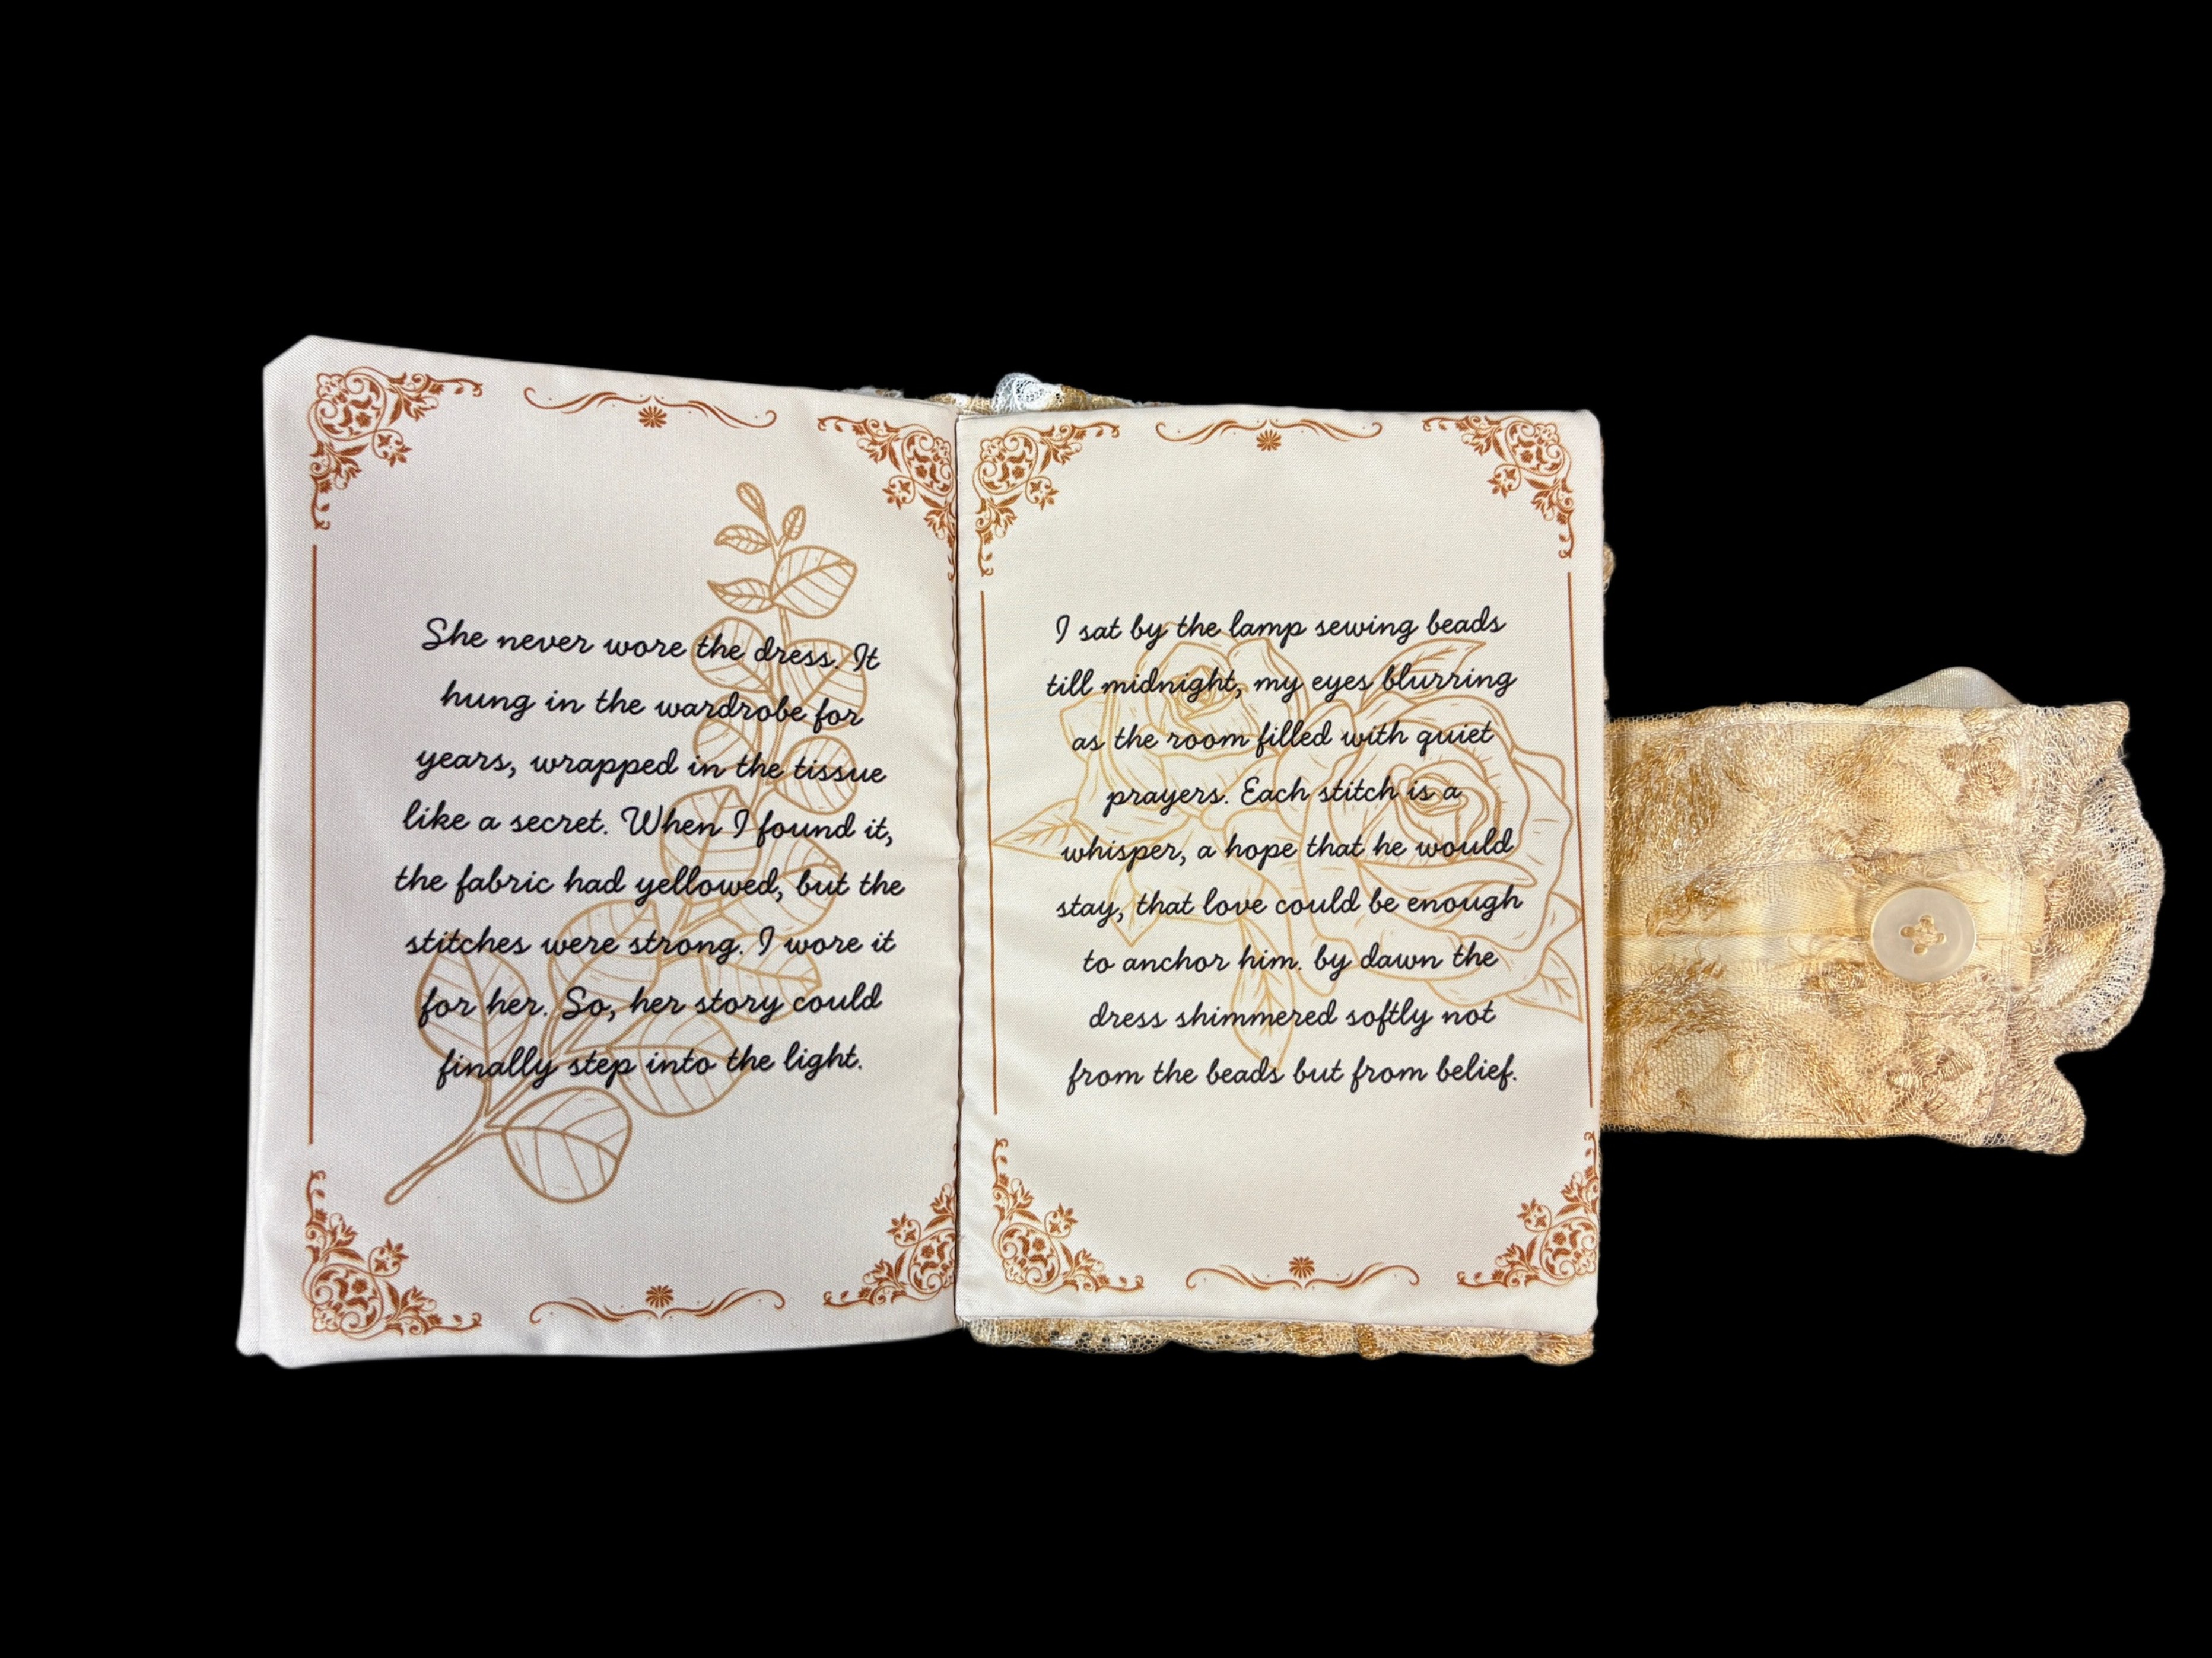 She never wore the dress. It
hung in the wardrobe for
years, wrapped in the tissue
like a secret. When I found it,
the fabric had yellowed, but the
stitches were strong. I wore it
for her. So, her story could
finally step into the light.
I sat by the lamp sewing beads
till midnight, my eyes blurring
as the room filled with quiet
prayers. Each stitch is a
whisper, a hope that he would
stay, that love could be enough
to anchor him. by dawn the
dress shimmered softly not
from the beads but from belief.